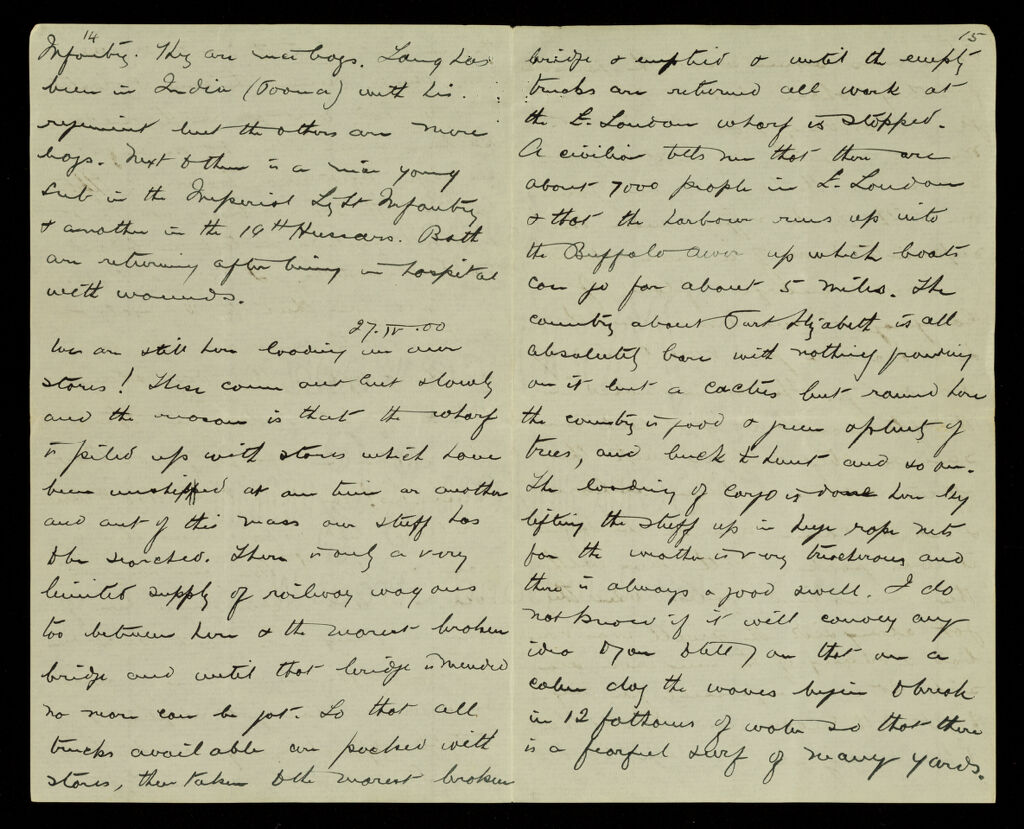 14
Infantry. They are nice boys. Lang has
been in India (Poona) with his
regiment but the others are mere
boys. Next to them is a nice young
sub in the Imperial Light Infantry
& another in the 19th Hussars. Both
are returning after being in hospital
with wounds.
27.IV.00
We are still here loading in our
stores! These come out but slowly
and the reason is that the wharf
is piled up with stores which have
been unshipped at one time or another
and out of this mass our stuff has
to be searched. There is only a very
limited supply of railway wagons
too between here & the nearest broken
bridge and until that bridge is mended
no more can be got. So that all
trucks available are packed with
stores, then taken to the nearest broken
15
bridge & emptied & until the empty
trucks are returned all work at
the E. London wharf is stopped.
A civilian tells me that there are
about 7000 people in E. London
& that the harbour runs up into
the Buffalo river up which boats
can go for about 5 miles. The
country about Port Elizabeth is all
absolutely bare with nothing growing
on it but a cactus but round here
the country is good & green & plenty of
trees, and buck to hunt and so on.
The loading of cargo is done here by
lifting the stuff up in huge rope nets
for the weather is very treacherous and
there is always a good swell. I do
not know if it will convey any
idea to you to tell you that on a
calm day the waves begin to break
in 12 fathoms of water so that there
is a fearful surf of many yards.